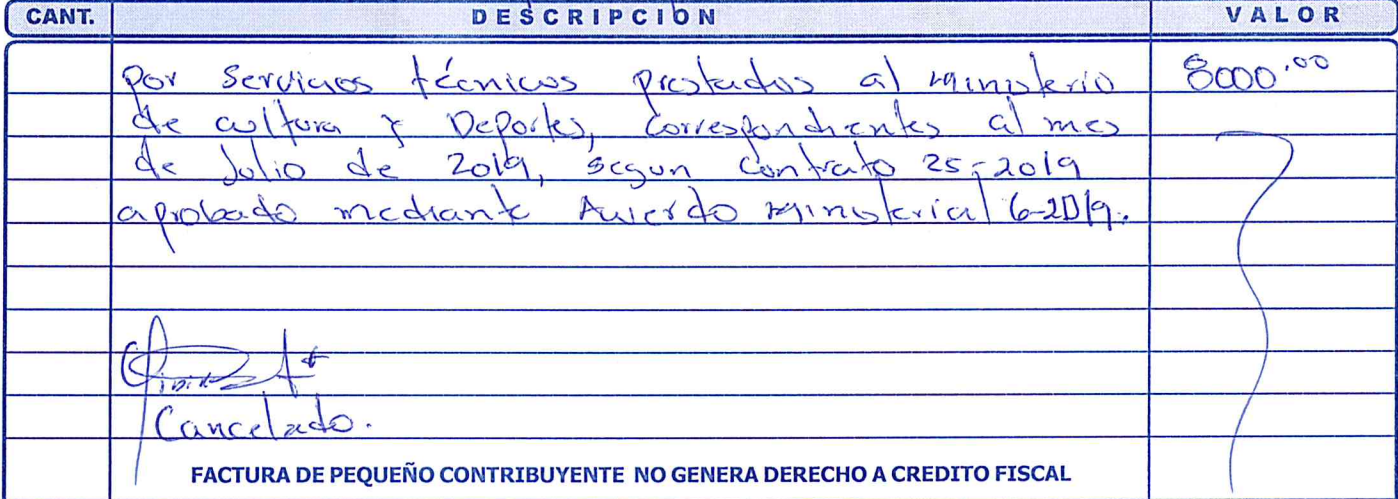 CANT. DESCRIPCIÓN VALOR
Por Servicios técnicos prestados al ministerio 8000.00
de cultura y Deportes, correspondientes al mes
de Julio de 2019, segun contrato 25-2019
aprobado mediante Acuerdo ministerial 6-2019.
Cancelado.
FACTURA DE PEQUEÑO CONTRIBUYENTE NO GENERA DERECHO A CREDITO FISCAL